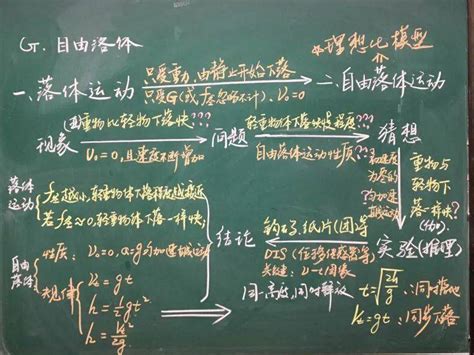 G. 自由落体
*理想化模型
一、落体运动
只受重力,由静止开始下落
只受G(或f忽略不计)、V₀=0
二、自由落体运动
重物比轻物下落快???
现象
V₀=0,且速度不断增加
问题
轻重物体下落快慢程度???
自由落体运动性质??
猜想
初速度为零的匀加速
重物与轻物下落一样快?
落体运动
f越小,轻重物体下落程度越接近
若f≈0,轻重物体下落一样快
结论
钩码、纸片(团)等
DIS(位移传感器等)
关键:v-t图象
实验(推理)
同一高度,同时释放
t=√(2h/g) ∴同时落地
Vt=gt ∴同步下落
自由落体
性质:V₀=0,a=g匀加速直线运动
规律
Vt=gt
h=½gt²
h=Vt²/2g